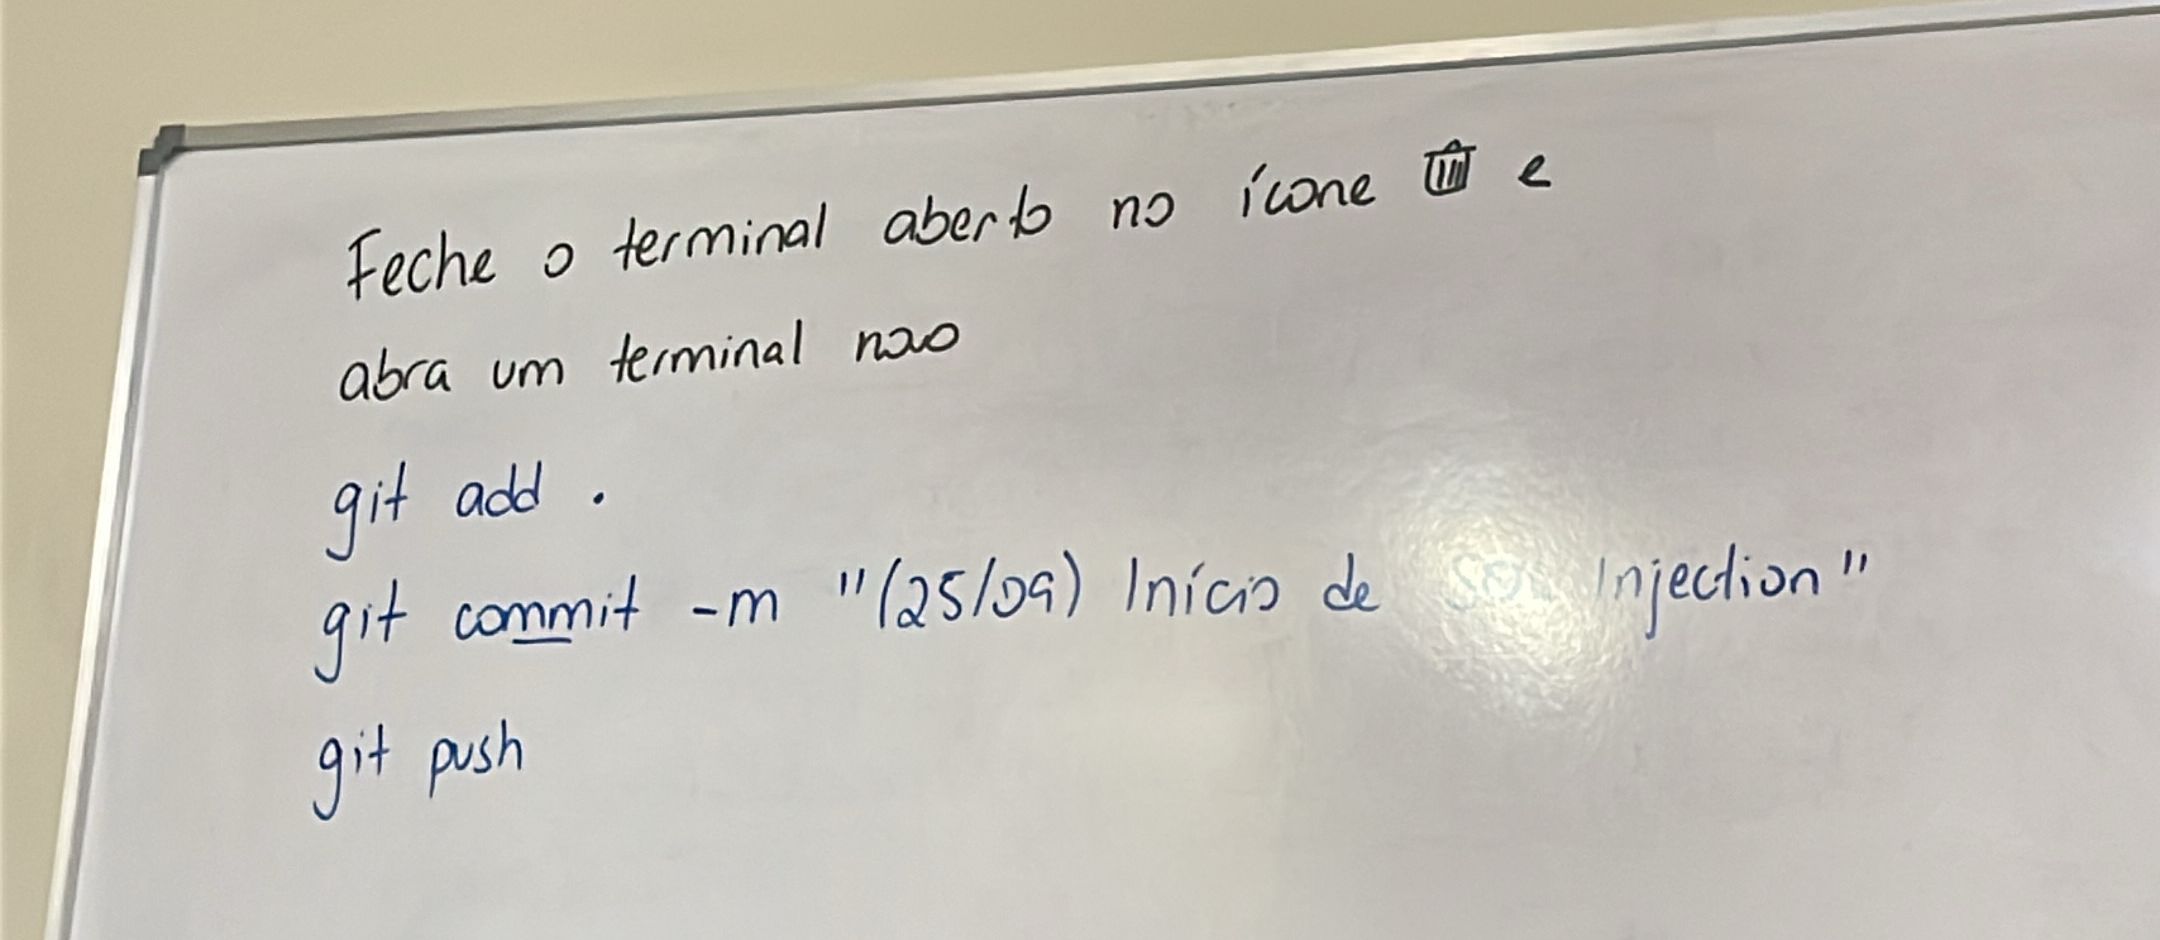 Feche o terminal aberto no ícone e
abra um terminal novo
git add .
git commit -m "(25/09) Início de Injection"
git push